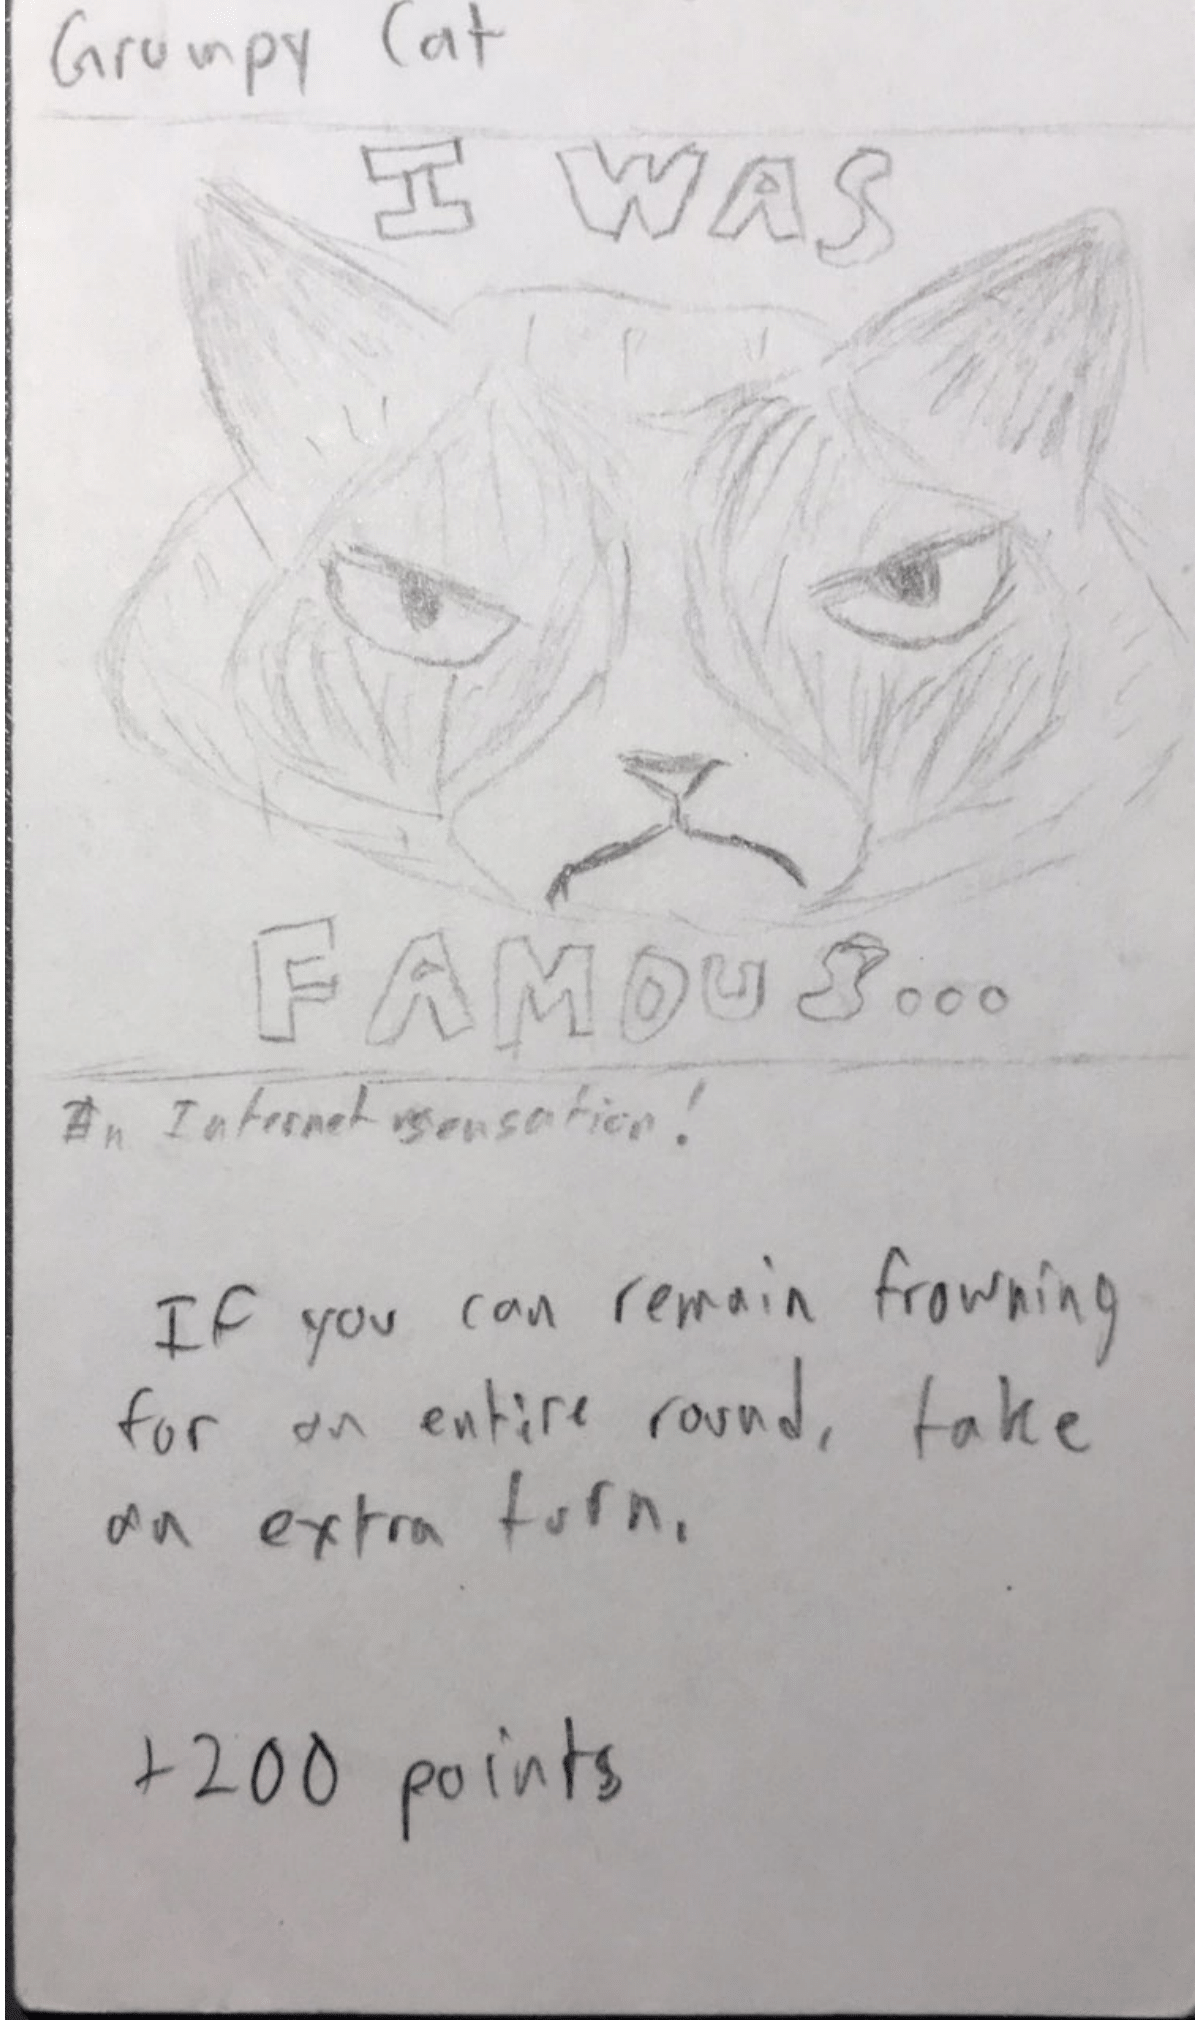 Grumpy Cat
I WAS
FAMOUS...
An Internet sensation!
If you can remain frowning
for an entire round, take
an extra turn.
+200 points